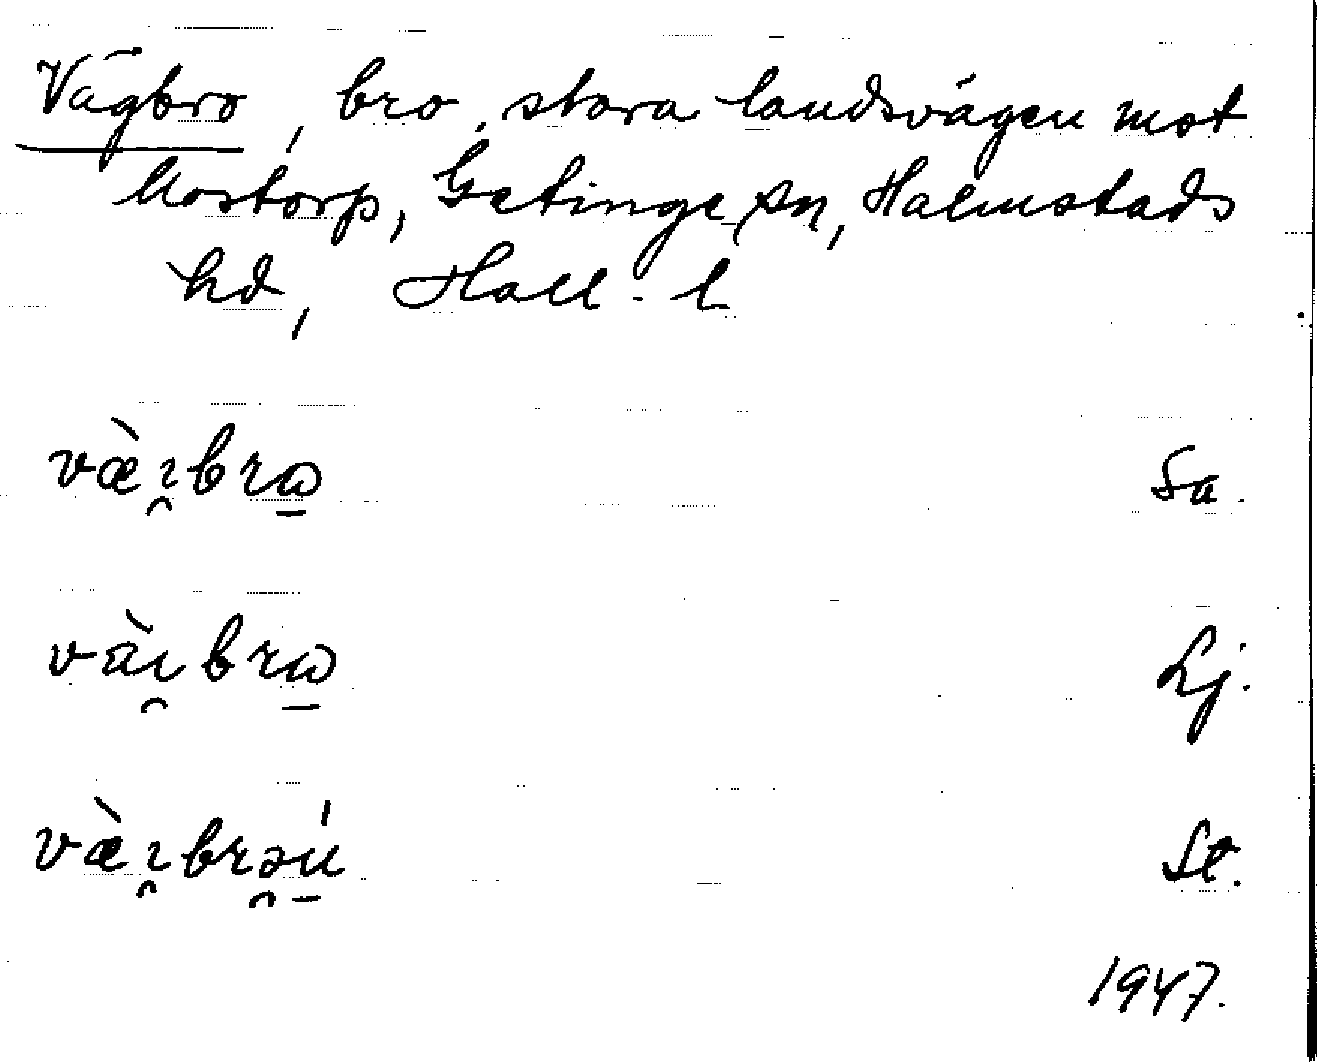 Vägbro, bro, stora landsvägen mot
Mostorp, Getinge sn, Halmstads
hd, Hall. l.
væ̀ɪ̯brω̲ Sa.
vàɪ̯brω̲ Lj.
væ̀ɪ̯brə̯ú̲ St.
1947.